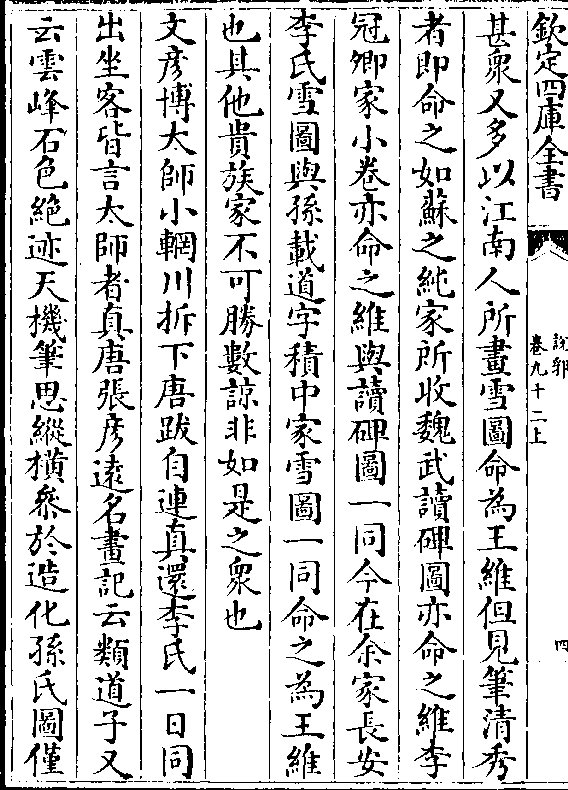 欽定四庫全書
說郛
卷九十二上
四
甚衆又多以江南人所畫雪圖命為王維但見筆清秀
者即命之如蘇之純家所收魏武讀碑圖亦命之維李
冠卿家小卷亦命之維與讀碑圖一同今在余家長安
李氏雪圖與孫載道字積中家雪圖一同命之為王維
也其他貴族家不可勝數諒非如是之衆也
文彥博太師小輞川拆下唐跋自連真還李氏一日同
出坐客皆言太師者真唐張彥遠名畫記云類道子又
云雲峰石色絶迹天機筆思縱橫叅於造化孫氏圖僅